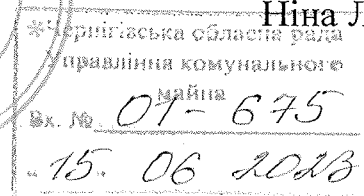 Ніна Л
Чернігівська обласна рада
Управління комунального
майна
Вх. № 01-675
"15" 06 2023